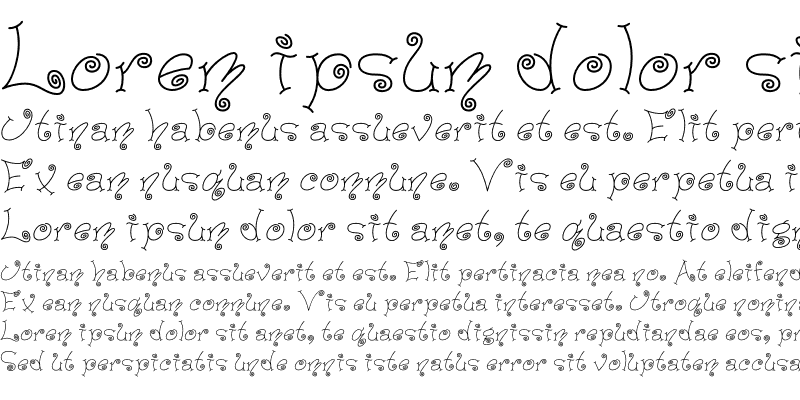 Lorem ipsum dolor si
Utinam habemus assueverit et est. Elit peri
Ex eam nusquam commune. Vis eu perpetua i
Lorem ipsum dolor sit amet, te quaestio dign
Utinam habemus assueverit et est. Elit pertinacia mea no. At eleifend
Ex eam nusquam commune. Vis eu perpetua interesset. Utroque nomin
Lorem ipsum dolor sit amet, te quaestio dignissim repudiandae eos, pr
Sed ut perspiciatis unde omnis iste natus error sit voluptatem accusa